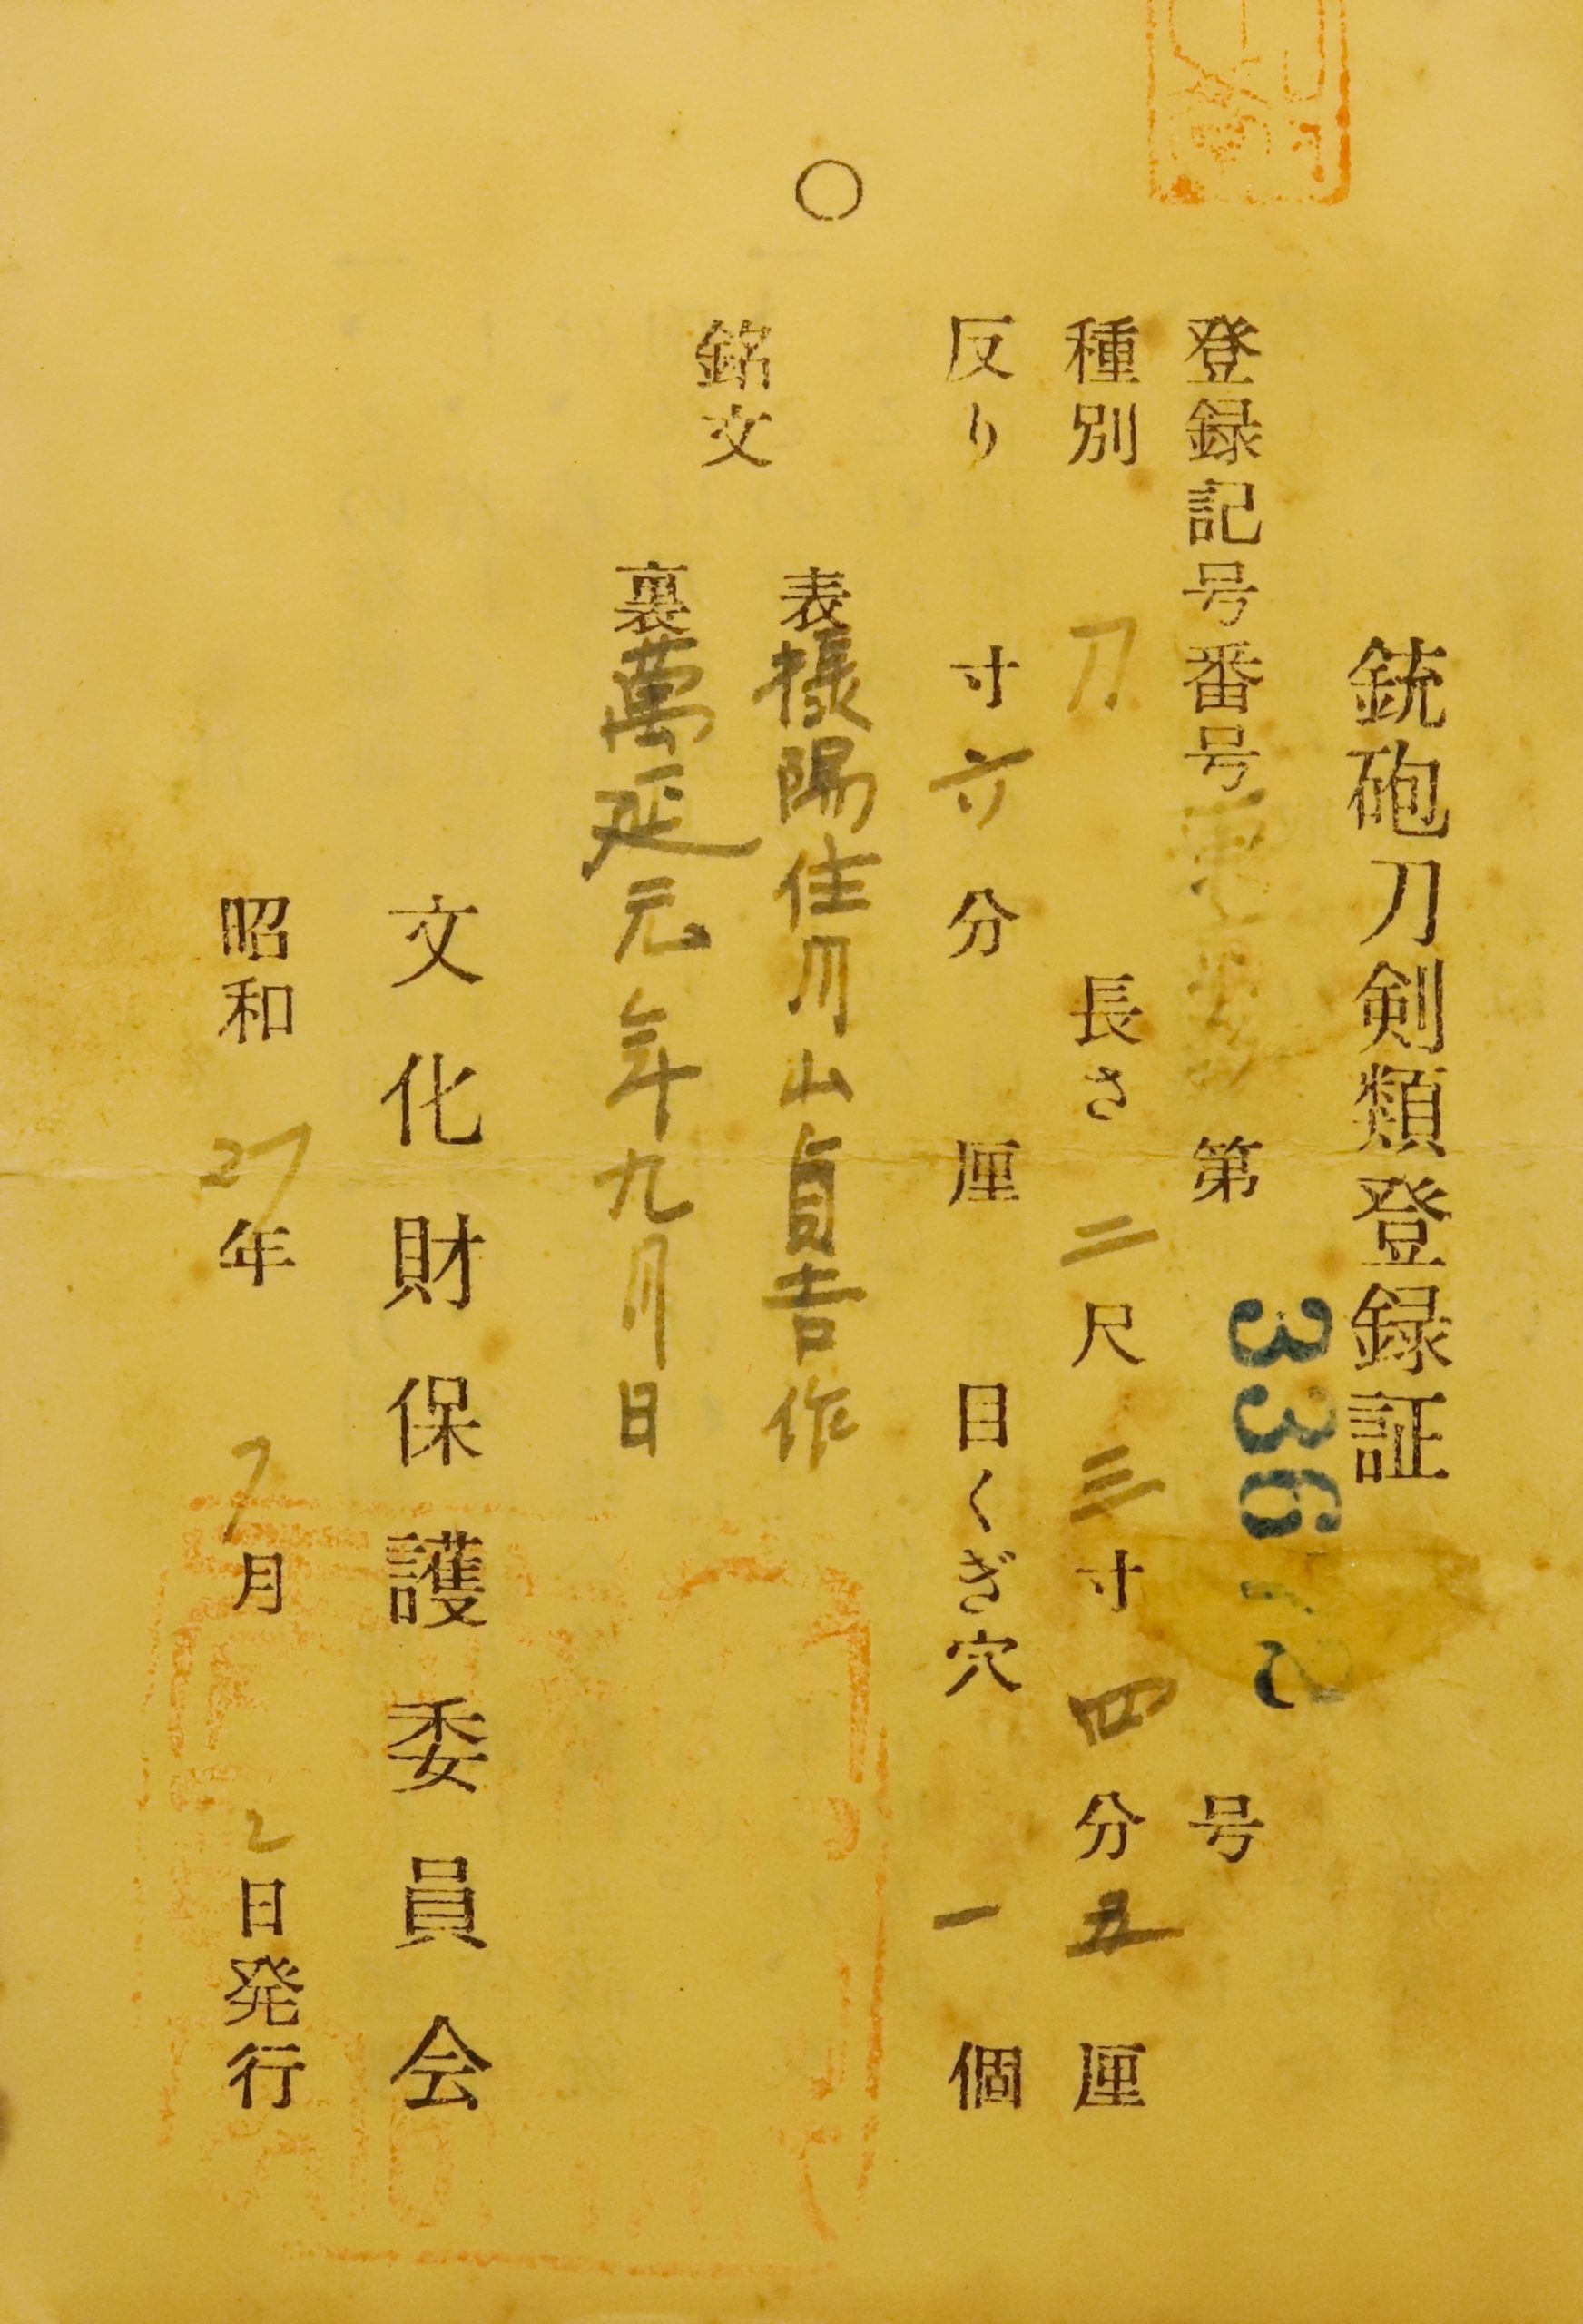 銃砲刀剣類登録証
登録記号番号 第 号
種別 刀 長さ 二尺三寸四分五厘
反り 寸六分 厘 目くぎ穴 一個
○
銘文
表 陽住月山貞吉作
裏 萬延元年九月日
文化財保護委員会
昭和27年7月2日発行